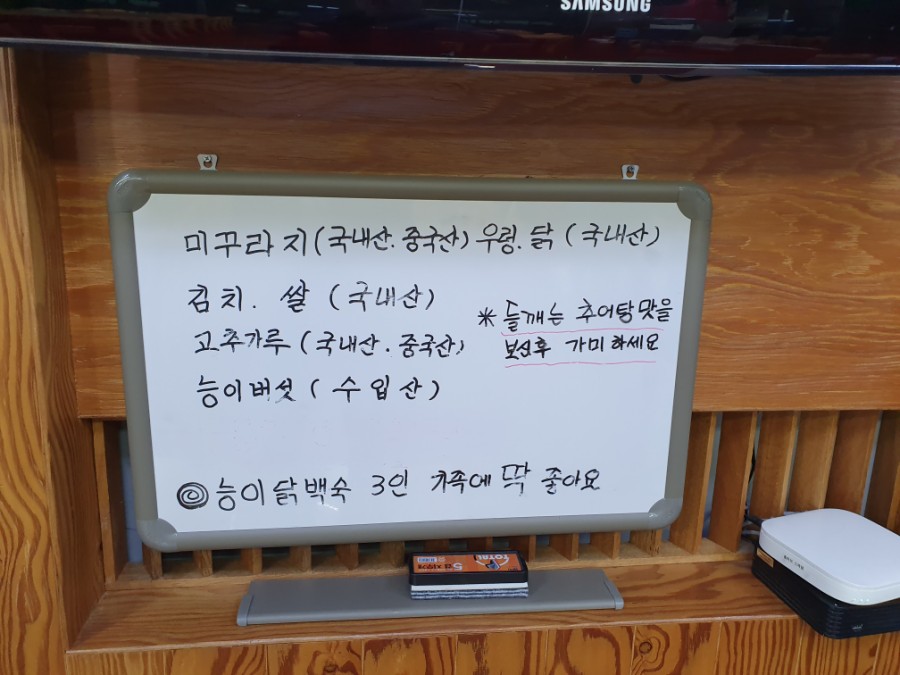 SAMSUNG
미꾸라지(국내산.중국산) 우렁.닭 (국내산)
김치. 쌀 (국내산)
고추가루 (국내산.중국산)
능이버섯 (수입산)
* 들깨는 추어탕맛을
보신후 가미하세요
◎ 능이닭백숙 3인 가족에 딱 좋아요
TOTAL